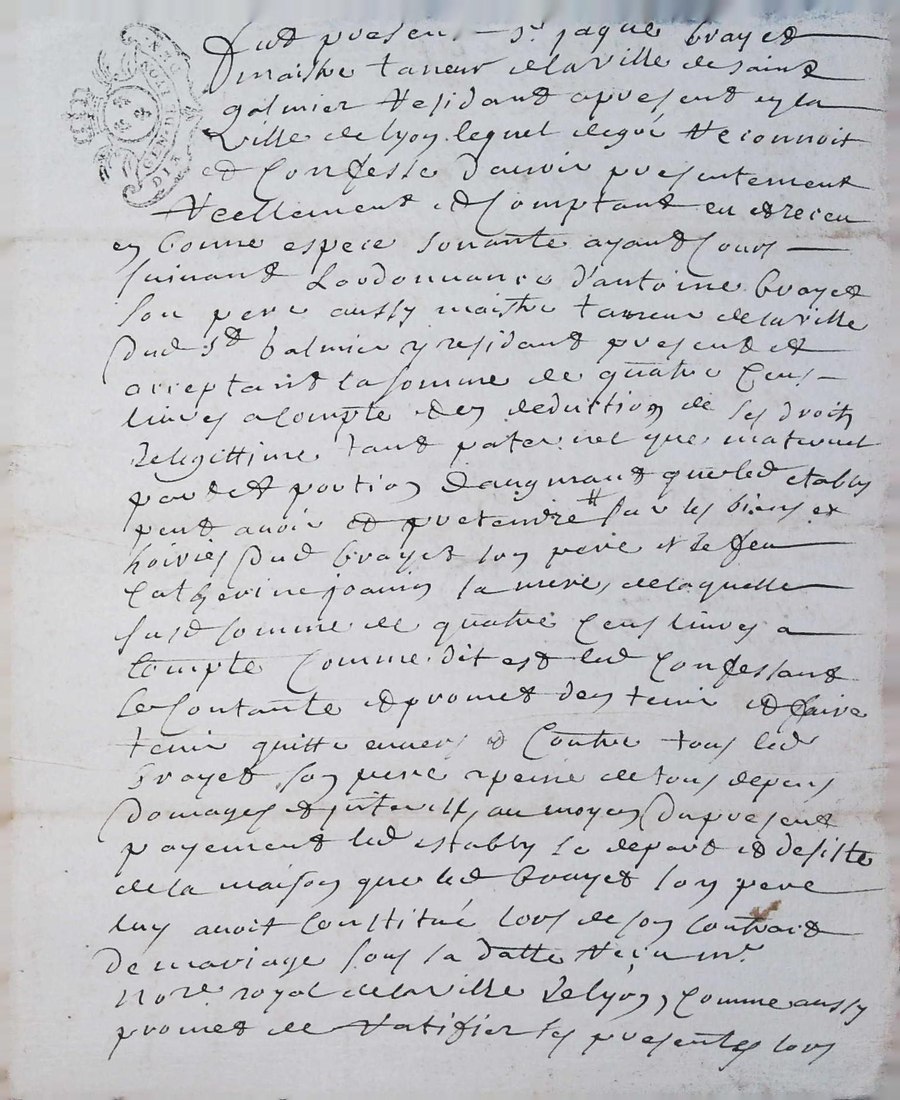 GEN DE LION
DIX DEN
fut presen. sr jaque brayet
maistre taneur de la ville de saint
galmier residant apresent en la
ville de lyon lequel de gré reconnoit
et Confesse d'avoir presentement
reellement et Comptant eu et receu
en bonne espece sonante ayant Cours
suivant Lordonnance d'antoine brayet
son pere aussy maistre tanneur de la ville
dud st balmier y residant present et
acceptant la somme de quatre Cens
livres a Compte et en deduction de ses droits
de legittime tant paternel que maternel
part et portion d'augmant que led estably
peut avoir et pretendre sur les biens et
hoiries dud brayet son pere et de feu
Catherine joanin sa mere, de laquelle
susd somme de quatre Cens livres a
Compte Comme dit est led Confessant
se Contante et promet den tenir et faire
tenir quitte envers et Contre tous led
brayet son pere a peine de tous depens
domages et interests, au moyen du present
payement led estably se depart et desiste
de la maison que led brayet son pere
luy avoit Constitué lors de son contrait
de mariage sous sa datte reçu mr.
nore royal de la ville de lyon, Comme aussy
promet de ratifier les presentes lors